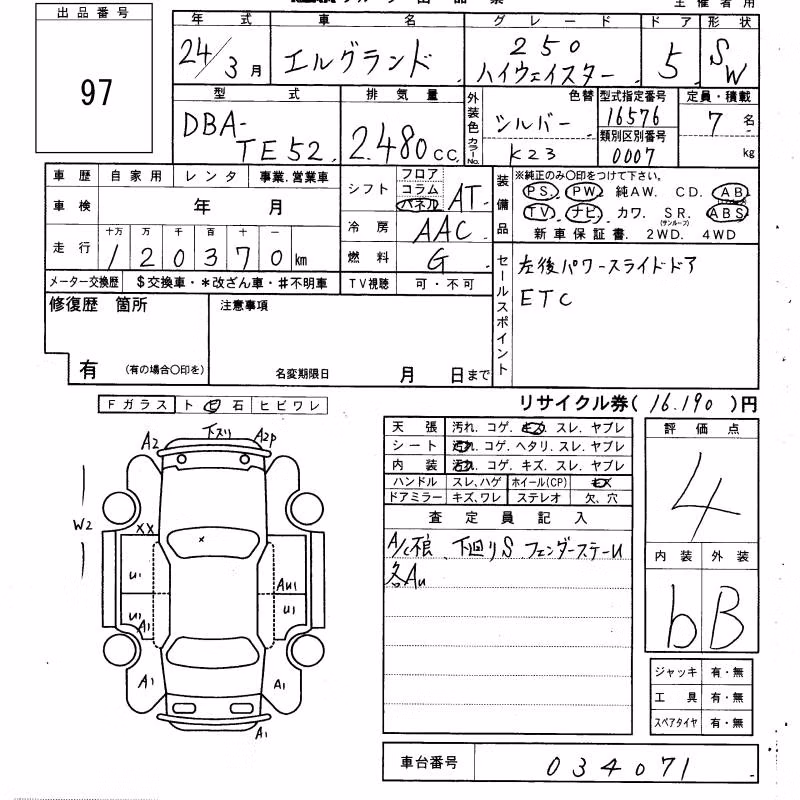 出品番号
97
年式 車名 グレード ドア 形状
24/3月 エルグランド 250 ハイウェイスター 5 SW
型式 排気量 外装色 色替 型式指定番号 定員・積載
DBA-TE52 2.480cc シルバー 16576 7名
カラーNo. K23 類別区別番号 0007 kg
車歴 自家用 レンタ 事業.営業車
車検 年 月
シフト フロア コラム パネル AT
冷房 AAC
走行 十万 万 千 百 十 一
120370km
燃料 G
メーター交換歴 $交換車・*改ざん車・#不明車 TV視聴 可・不可
装備品 ※純正のみ〇印をつけて下さい。
PS. PW. 純AW. CD. AB
TV. ナビ. カワ. SR.(サンルーフ) ABS
新車保証書. 2WD. 4WD
セールスポイント
左後パワースライドドア
ETC
修復歴 箇所 注意事項
有 (有の場合〇印を) 名変期限日 月 日まで
Fガラス ト 日 石 ヒビワレ
リサイクル券(16.190)円
天張 汚れ. コゲ. キズ. スレ. ヤブレ
シート 汚れ. コゲ. ヘタリ. スレ. ヤブレ
内装 汚れ. コゲ. キズ. スレ. ヤブレ
ハンドル スレ, ハゲ ホイール(CP) キズ
ドアミラー キズ, ワレ ステレオ 欠、穴
査定員記入
A/C不良、下廻りS フェンダーステーU
各Au
評価点
4
内装 外装
b B
ジャッキ 有・無
工具 有・無
スペアタイヤ 有・無
車台番号 034071
A2 下スリ A2P
W2
XX
U1 AU1
U1 A1 U1
A1 A1
A1